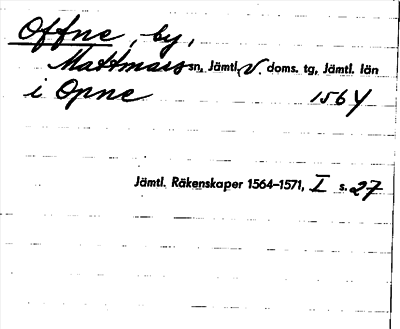 Offne, by,
Mattmars sn, Jämtl. V. doms. tg, Jämtl. län
i Opne 1564
Jämtl. Räkenskaper 1564–1571, I s. 27